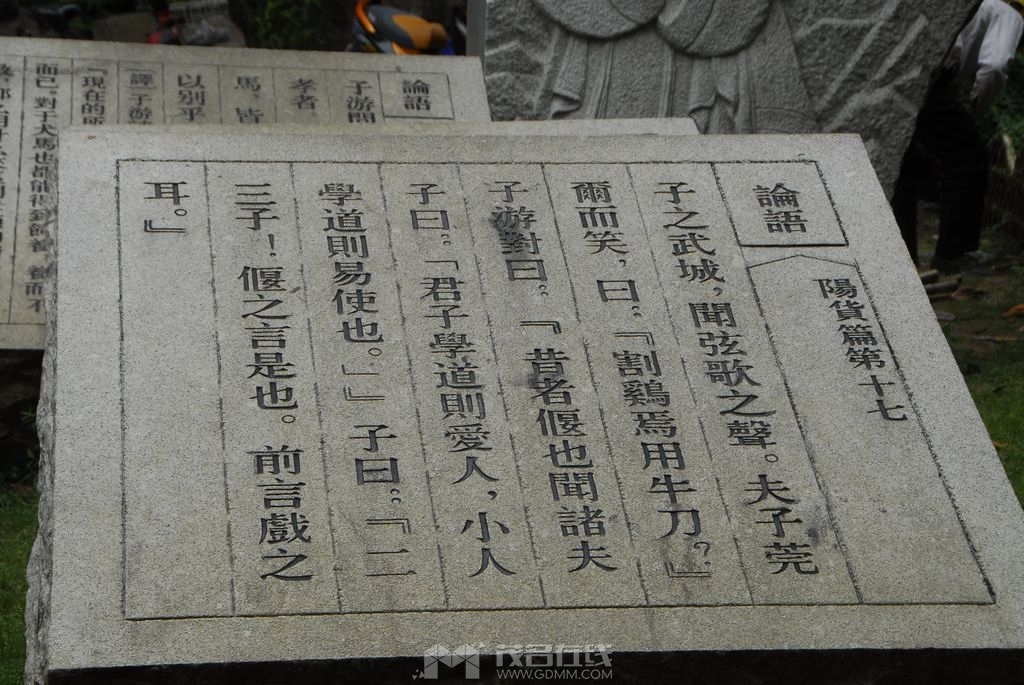 論語
陽貨篇第十七
子之武城，聞弦歌之聲。夫子莞
爾而笑，曰：『割鷄焉用牛刀？』
子游對曰：『昔者偃也聞諸夫
子曰：「君子學道則愛人，小人
學道則易使也。」』子曰：『二
三子！偃之言是也。前言戲之
耳。』
論語
子游問
孝者
馬，皆
以別乎
子游
『現在的所
而已。對于犬馬也都能得到飼養，
茂名在线
WWW.GDMM.COM